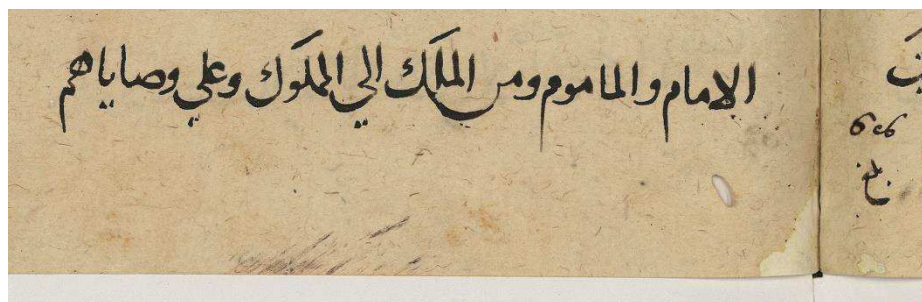 الامام والماموم ومن الملك الي المملوك وعلي وصاياهم
بلغ